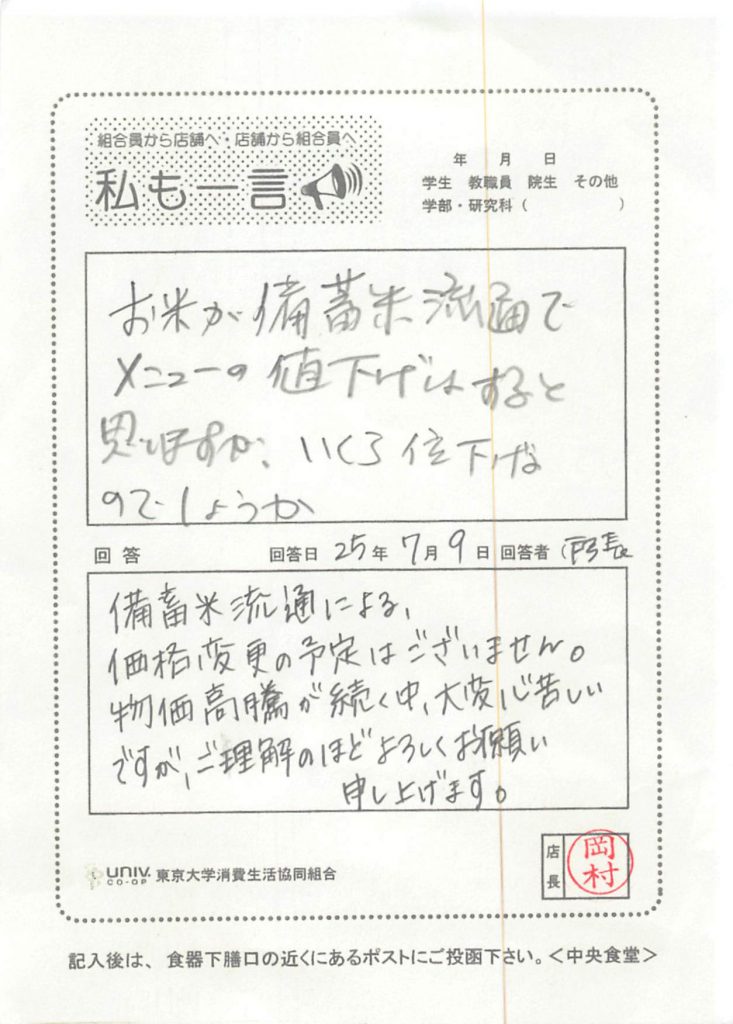 組合員から店舗へ・店舗から組合員へ
私も一言
年 月 日
学生 教職員 院生 その他
学部・研究科( )
お米が備蓄米流通で
メニューの値下げはすると
思いますが、いくら位下げな
のでしょうか
回答 回答日 25年 7月 9日 回答者
備蓄米流通による、
価格変更の予定はございません。
物価高騰が続く中、大変心苦しい
ですが、ご理解のほどよろしくお願い
申し上げます。
UNIV. CO-OP 東京大学消費生活協同組合
店長 岡村
記入後は、食器下膳口の近くにあるポストにご投函下さい。<中央食堂>